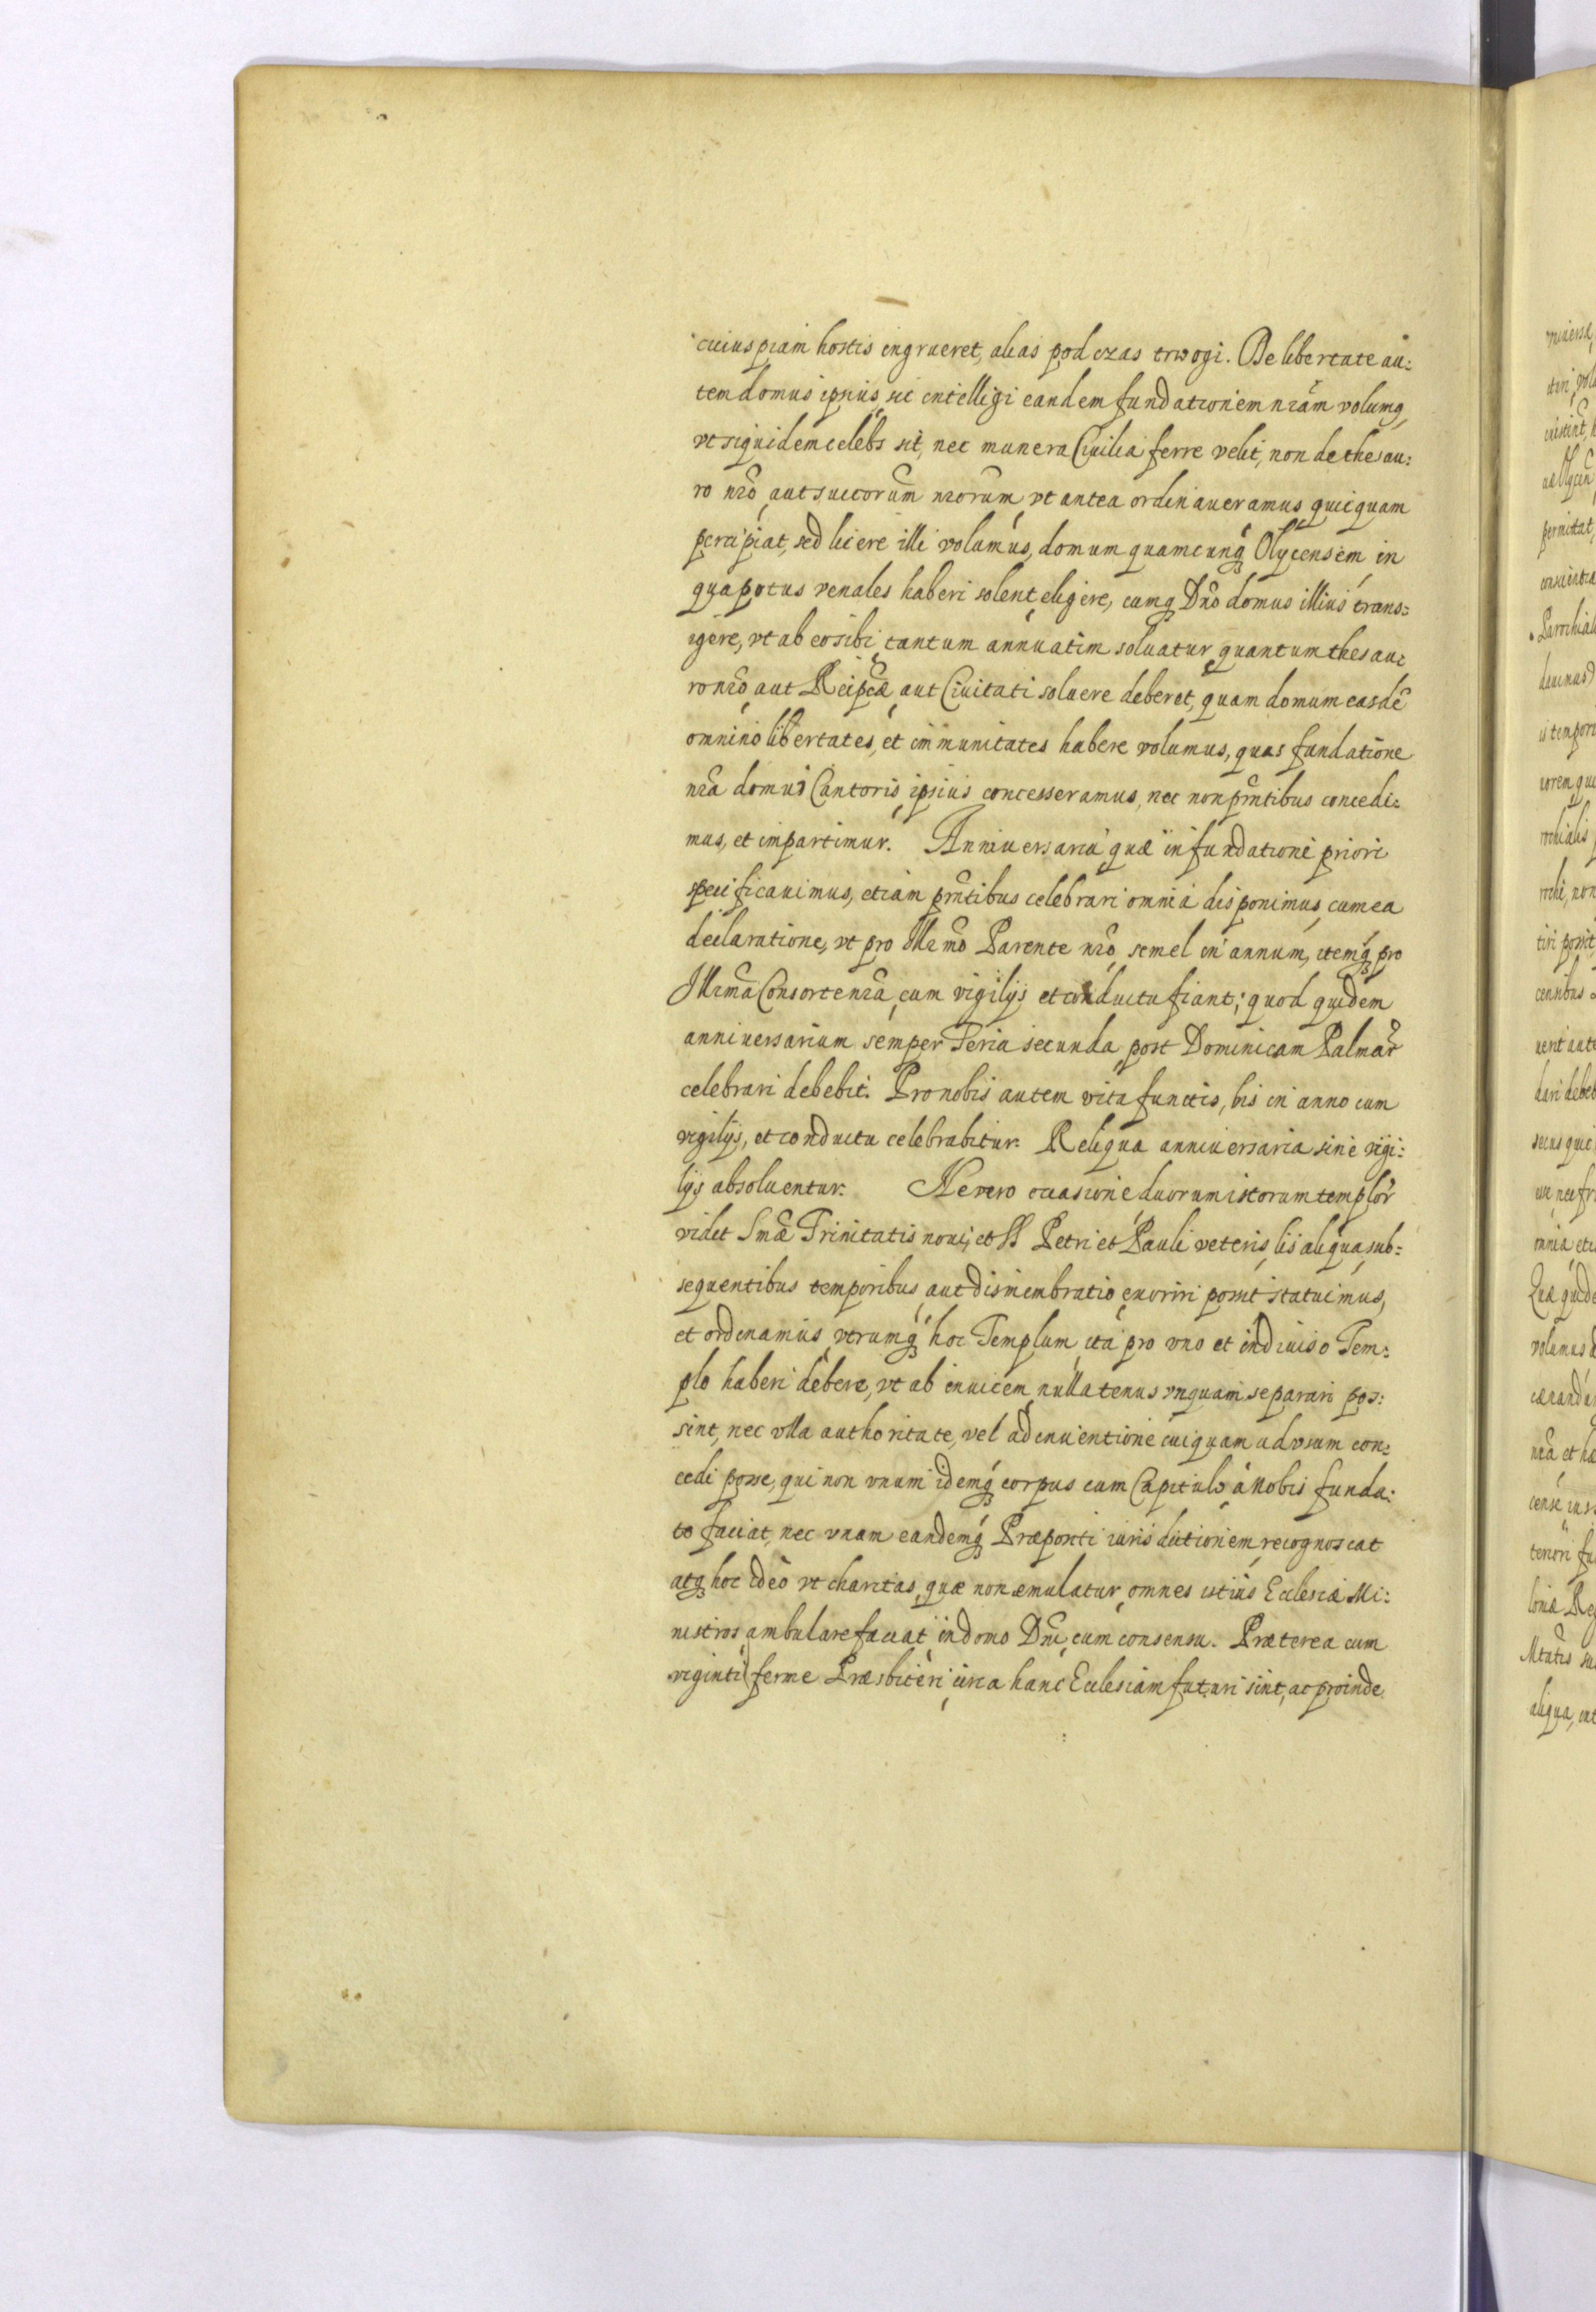 cuiuspiam hostis ingrueret, alias pod czas trwogi. De libertate au:
tem domus ipsius, sic intelligi eandem fundationem nram volumq,
vt siquidem celebs sit, nec munera Ciuilia ferre velit, non de thesau:
ro nro, aut suctorum nrorum, vt antea ordinaueramus quicquam
percipiat, sed licere illi volumus, domum quamcunq Olycensem in
qua potus venales haberi solent, eligere, cumq Dno domus illius trans:
igere, vt ab eo sibi tantum annuatim soluatur, quantum thesau:
ro nro, aut Reipcæ, aut Ciuitati soluere deberet, quam domum easdē
omnino libertates, et immunitates habere volumus, quas fundatione
nra domui Cantoris ipsius concesseramus, nec non pntibus concedi:
mus, et impartimur. Anniuersaria quæ in fundatione priori
specificauimus, etiam pntibus celebrari omnia disponimus, cum ea
declaratione, vt pro Illrmo Parente nro, semel in annum, itemq pro
Illrma Consorte nra, cum vigilijs et conductu fiant; quod quidem
anniuersarium semper Feria secunda post Dominicam Palmar
celebrari debebit. Pro nobis autem vita functis, bis in anno cum
vigilijs, et conductu celebrabitur. Reliqua anniuersaria sine vigi:
lijs absoluentur. Ne vero occasione duorum istorum templor
videt Smæ Trinitatis noui, et SS Petri et Pauli veteris, lis aliqua, sub:
sequentibus temporibus, aut dismembratio, enoriri possit statuimus,
et ordinamus, vtrumq hoc Templum, ita pro vno et indiuiso Tem:
plo haberi debere, vt ab inuicem nullatenus vnquam separari pos:
sint, nec vlla authoritate, vel adinuentione cuiquam ad vsum con:
cedi posse, qui non vnum idemq corpus cum Capitulo à nobis funda:
to faciat, nec vnam eandemq Præpositi iurisdictionem, recognoscat
atq hoc ideò vt charitas, quæ non emulatur, omnes istius Ecclesiæ Mi:
nistros ambulare faciat in domo Dni, cum consensu. Præterea cum
viginti ferme Præsbiteri, circa hanc Ecclesiam futuri sint, ac proinde